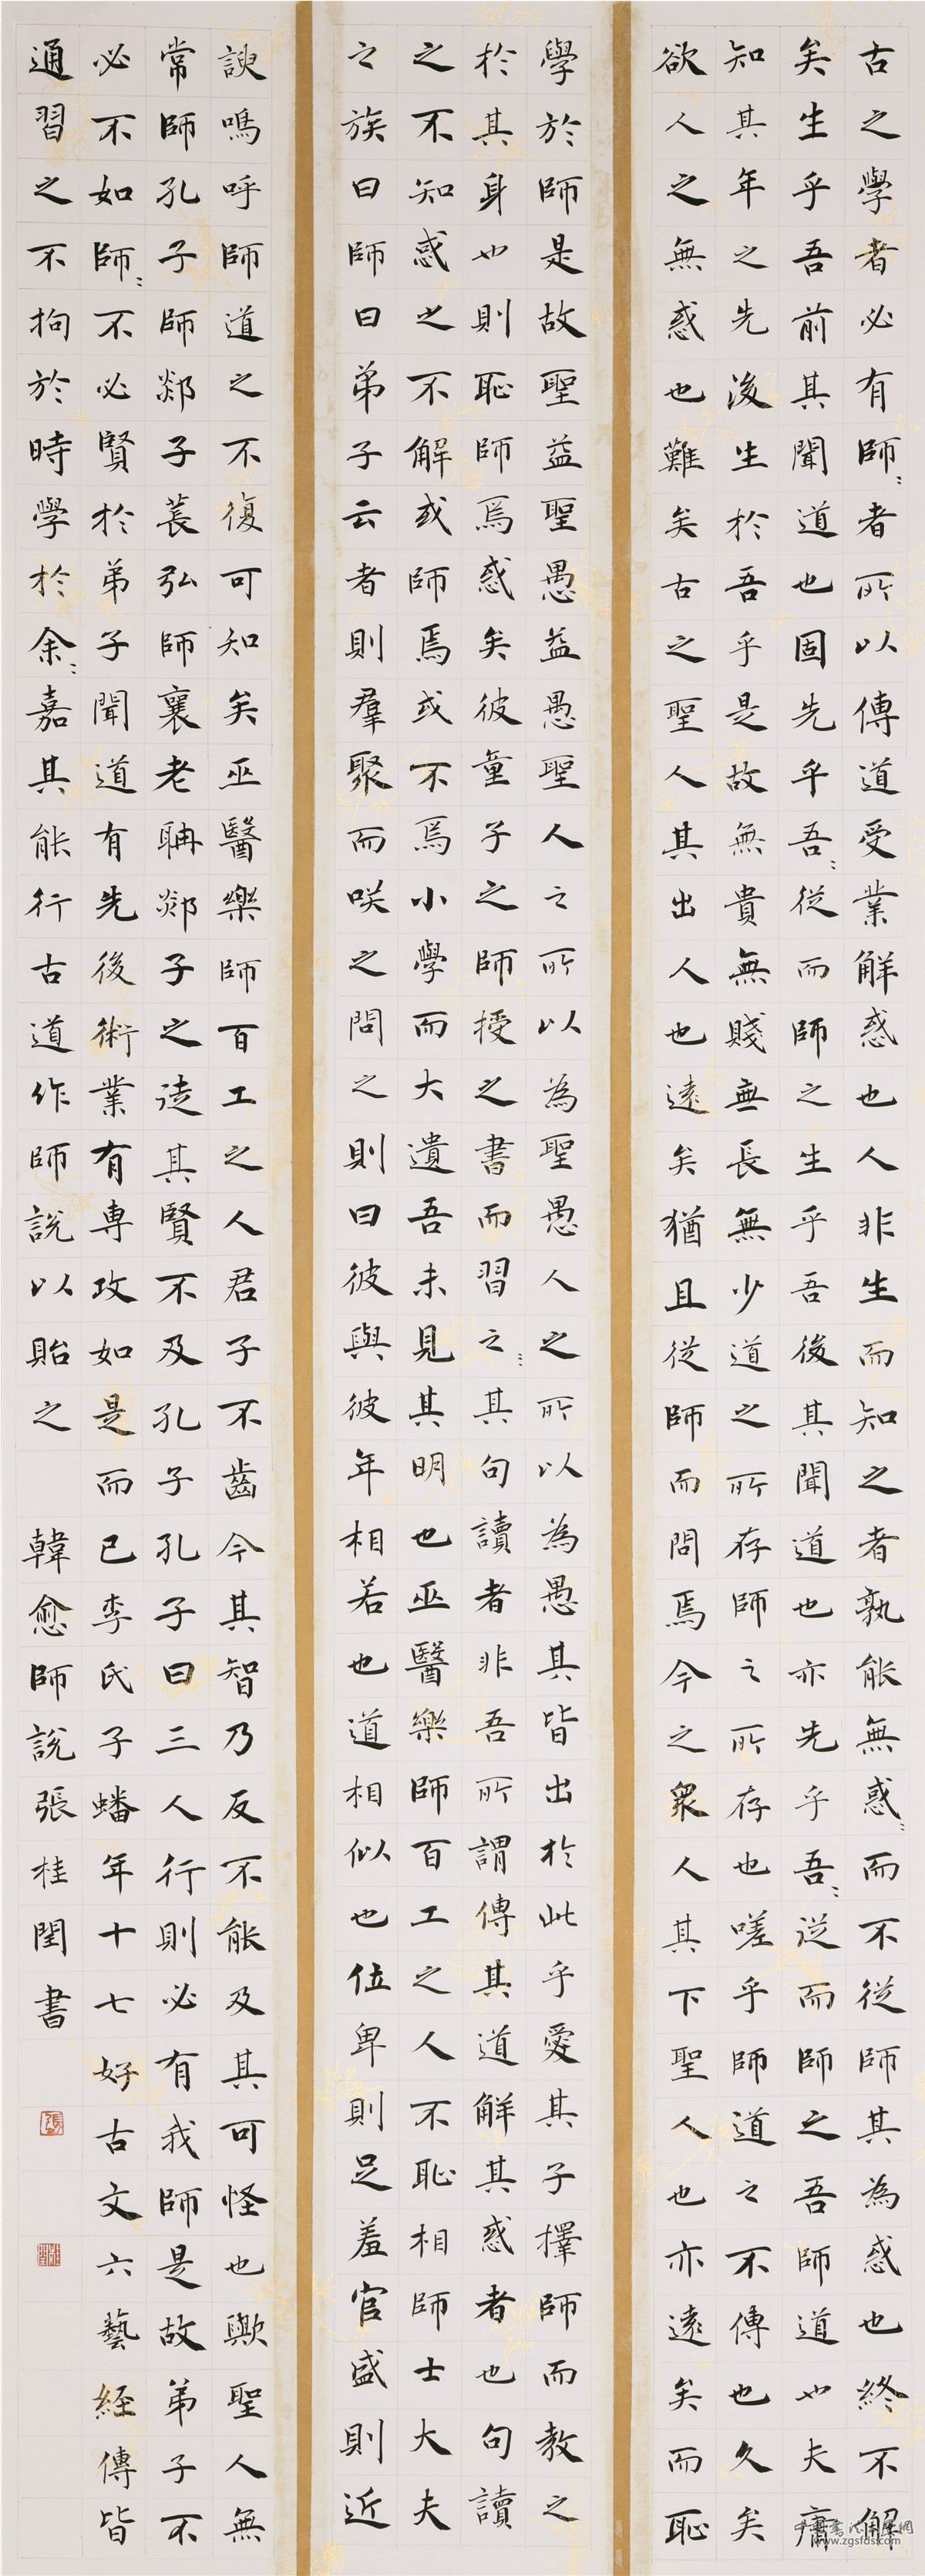 古之學者必有師〻者所以傳道受業解惑也人非生而知之者孰能無惑〻而不從師其為惑也終不解
矣生乎吾前其聞道也固先乎吾〻從而師之生乎吾後其聞道也亦先乎吾〻從而師之吾師道也夫庸
知其年之先後生於吾乎是故無貴無賤無長無少道之所存師之所存也嗟乎師道之不傳也久矣
欲人之無惑也難矣古之聖人其出人也遠矣猶且從師而問焉今之眾人其下聖人也亦遠矣而恥
學於師是故聖益聖愚益愚聖人之所以為聖愚人之所以為愚其皆出於此乎愛其子擇師而教之
於其身也則恥師焉惑矣彼童子之師授之書而習之〻其句讀者非吾所謂傳其道解其惑者也句讀
之不知惑之不解或師焉或不焉小學而大遺吾未見其明也巫醫樂師百工之人不恥相師士大夫
之族曰師曰弟子云者則羣聚而咲之問之則曰彼與彼年相若也道相似也位卑則足羞官盛則近
諛嗚呼師道之不復可知矣巫醫樂師百工之人君子不齒今其智乃反不能及其可怪也歟聖人無
常師孔子師郯子萇弘師襄老聃郯子之徒其賢不及孔子孔子曰三人行則必有我師是故弟子不
必不如師〻不必賢於弟子聞道有先後術業有專攻如是而已李氏子蟠年十七好古文六藝經傳皆
通習之不拘於時學於余〻嘉其能行古道作師說以貽之 韓愈師說張桂閨書
www.zgsfds.com